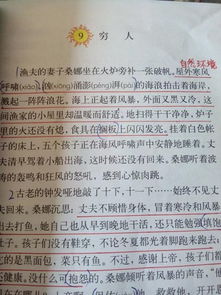 9 穷人
渔夫的妻子桑娜坐在火炉旁补一张破帆。屋外寒风
自然环境
呼啸(xiào),汹(xiōng)涌澎(péng)湃(pài)的海浪拍击着海岸,
溅起一阵阵浪花。海上正起着风暴,外面又黑又冷,这
间渔家的小屋里却温暖而舒适。地扫得干干净净,炉子
里的火还没有熄,食具在搁板上闪闪发亮。挂着白色帐
子的床上,五个孩子正在海风呼啸声中安静地睡着。丈
夫清早驾着小船出海,这时候还没有回来。桑娜听着波
涛的轰鸣和狂风的怒吼,感到心惊肉跳。
2 古老的钟发哑地敲了十下,十一下……始终不见丈
夫回来。桑娜沉思:丈夫不顾惜身体,冒着寒冷和风暴
出去打鱼,她自己也从早到晚地干活,还只能勉强填饱
肚子。孩子们没有鞋穿,不论冬夏都光着脚跑来跑去;
吃的是黑面包,菜只有鱼。不过,感谢上帝,孩子们都
还健康。没什么可抱怨的。桑娜倾听着风暴的声音,“他